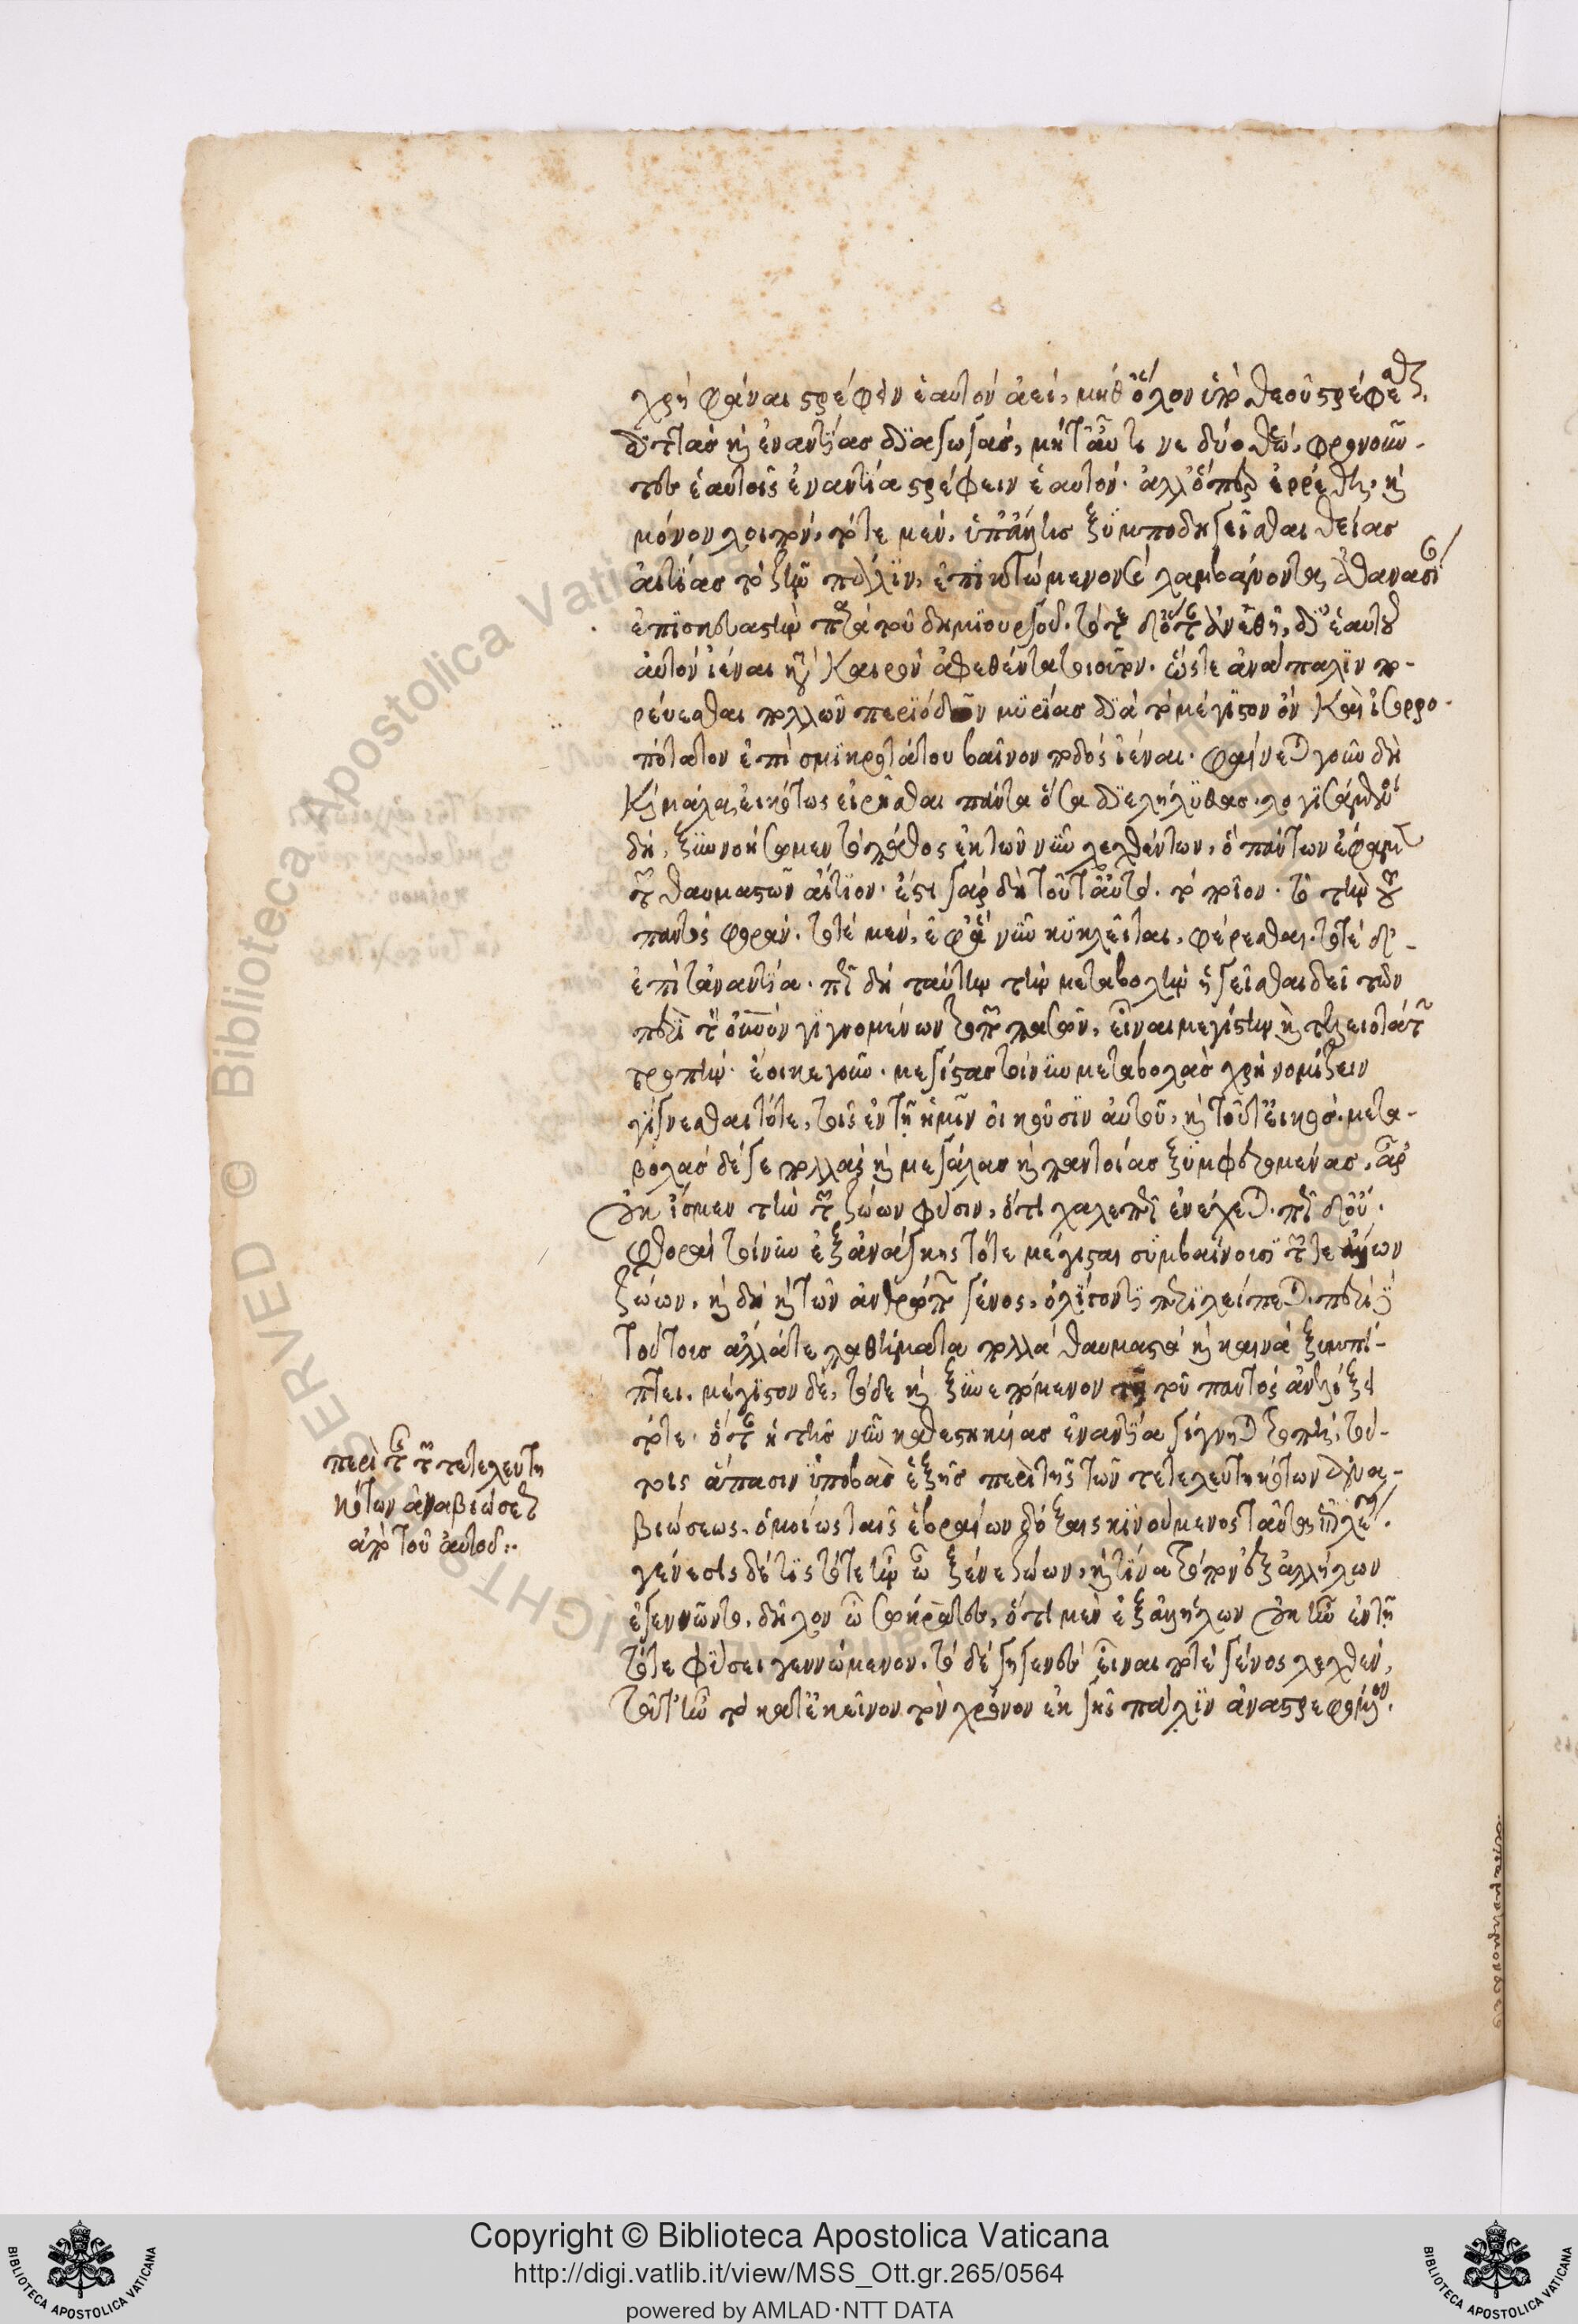 χρὴ φάναι στρέφειν ἑαυτὸν ἀεὶ, μήθ' ὅλον ὑπὸ θεοῦ στρέφεσθαι,
διττὰς καὶ ἐναντίας διαγωγάς, μήτ' αὖ τινε δύο θεὼ, φρονοῦν-
τε ἑαυτοῖς ἐναντία στρέφειν ἑαυτόν. ἀλλ' ὅπερ ἐρρέθη, καὶ
μόνον λοιπόν, τότε μὲν, ὑπ' ἄλλης ξυμποδηγεῖσθαι θείας
αἰτίας τὸ ζῆν πάλιν, ἐπικτώμενον καὶ λαμβάνοντα ἀθανασίαν
ἐπισκευαστὴν παρὰ τοῦ δημιουργοῦ. τότε δ' ὅταν ἀνεθῆ, δι' ἑαυτοῦ
αὐτὸν ἰέναι κατὰ καιρὸν ἀφεθέντα τοιοῦτον. ὥστε ἀνάπαλιν πο-
ρεύεσθαι πολλῶν περιόδων μυρίας διὰ τὸ μέγιστον ὂν καὶ ἰσορρο-
πότατον ἐπὶ σμικροτάτου βαῖνον ποδὸς ἰέναι. φαίνεται γοῦν δὴ
καὶ μάλα, εἰκότως εἰρῆσθαι πάντα ὅσα διελήλυθας. λογισάμενοι
δὴ, ξυννοήσωμεν τὸ πάθος ἐκ τῶν νῦν λεχθέντων, ὃ πάντων ἔφαμεν
τῶν θαυμαστῶν αἴτιον. ἔστι γὰρ δὴ τοῦτ' αὐτό. τὸ ποῖον. τὸ τὴν τοῦ
παντὸς φοράν. τοτὲ μὲν, ἐφ' ἃ νῦν κυκλεῖται, φέρεσθαι. τοτὲ δ'
ἐπὶ τἀναντία. πῶς δὴ ταύτην τὴν μεταβολὴν ἡγεῖσθαι δεῖ τῶν
περὶ τὸν οὐρανὸν γιγνομένων τροπῶν πασῶν, εἶναι μεγίστην καὶ τελειοτάτην
τροπήν. ἔοικε γοῦν. μεγίστας τοίνυν μεταβολὰς χρὴ νομίζειν
γίγνεσθαι τότε, τοῖς ἐντὸς ἡμῖν οἰκοῦσιν αὐτοῦ, καὶ τοῦτ' εἰκός. μετα-
βολὰς δέ γε πολλὰς καὶ μεγάλας καὶ παντοίας ξυμφερομένας, ἆρ'
οὐκ ἴσμεν τὴν τῶν ζώων φύσιν, ὅτι χαλεπῶς ἀνέχεται. πῶς δ' οὔ.
φθοραὶ τοίνυν ἐξ ἀνάγκης τότε μέγισται συμβαίνουσι τῶν τε ἄλλων
ζώων, καὶ δὴ καὶ τῶν ἀνθρώπων γένος, ὀλίγον τι περιλείπεται. περὶ δὲ
τούτοις ἄλλά τε παθήματα πολλὰ θαυμαστὰ καὶ καινὰ ξυμπί-
πτει. μέγιστον δὲ, τόδε καὶ ξυνεπόμενον τῇ τοῦ παντὸς ἀνειλίξει
τότε. ὅταν ἡ τῆς νῦν καθεστηκυίας ἐναντία γίγνηται τροπή. τού-
τοις ἅπασιν ὑποβὰς ἑξῆς περὶ τῆς τῶν τετελευτηκότων ἀνα-
βιώσεως. ὁμοίως ταῖς ἑβραίων δόξαις κινούμενος ταῦτα
γένεσις δὲ τίς τότε ἦν ὦ ξένε ζώων, καὶ τίνα τρόπον ἐξ ἀλλήλων
ἐγεννῶντο. δῆλον ὦ σώκρατες, ὅτι μὲν ἐξ ἀλλήλων οὐκ ἦν ἐν τῇ
τότε φύσει γεννώμενον. τὸ δὲ γηγενὲς εἶναί ποτε γένος λεχθὲν,
τοῦτ' ἦν τὸ κατ' ἐκεῖνον τὸν χρόνον ἐκ γῆς πάλιν ἀναστρεφόμενον.
περὶ τῆς τῶν τετελευτη
κότων ἀναβιώσεως
ἀπὸ τοῦ αὐτοῦ:.
Copyright © Biblioteca Apostolica Vaticana
http://digi.vatlib.it/view/MSS_Ott.gr.265/0564
powered by AMLAD·NTT DATA
BIBLIOTECA APOSTOLICA VATICANA
BIBLIOTECA APOSTOLICA VATICANA